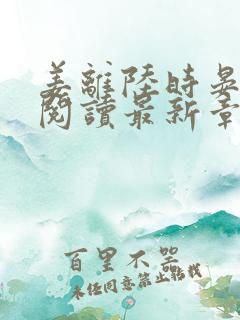 姜離陸時晏
閱讀最新章
百里不哭
未经同意禁止轉載